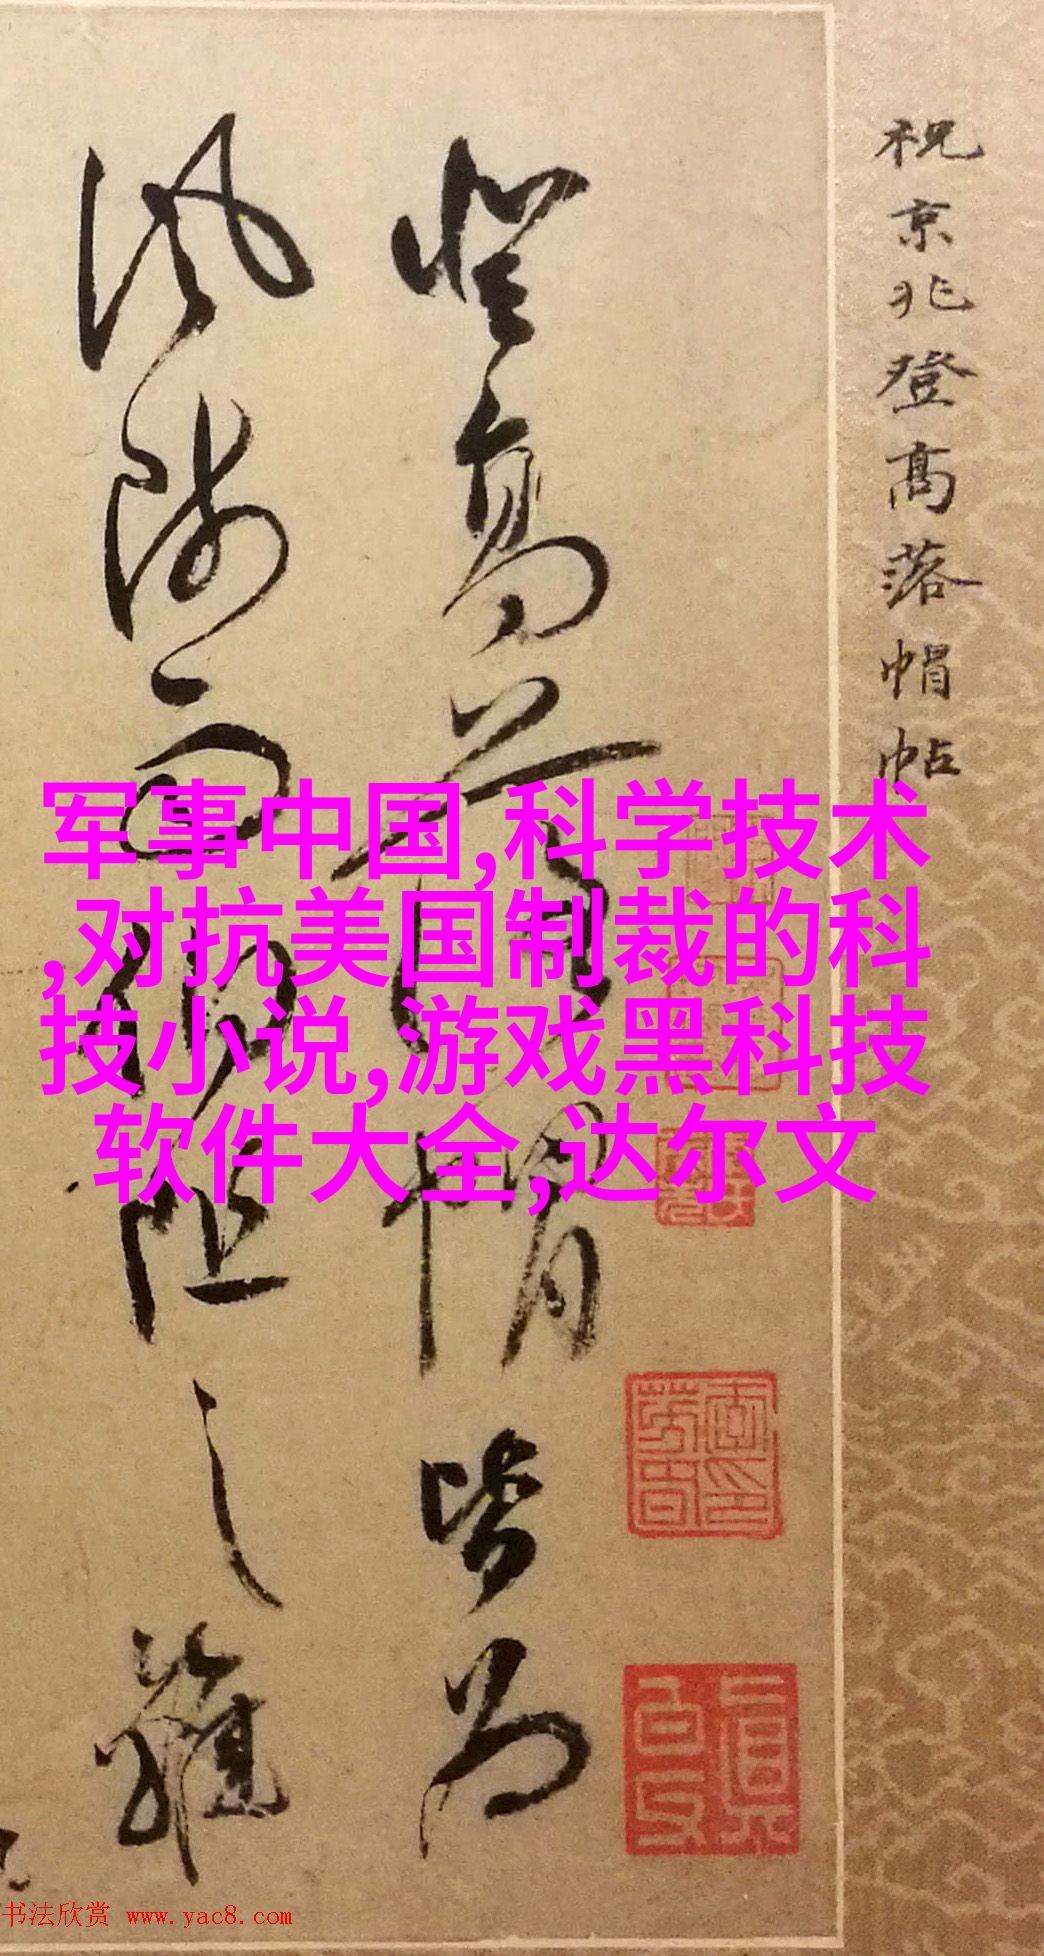 祝京兆登高落帽帖
登高落帽皆为
风师雨伯阻之雖
军事中国,科学技术
,对抗美国制裁的科
技小说,游戏黑科技
软件大全,达尔文
书法欣赏 www.yac8.com